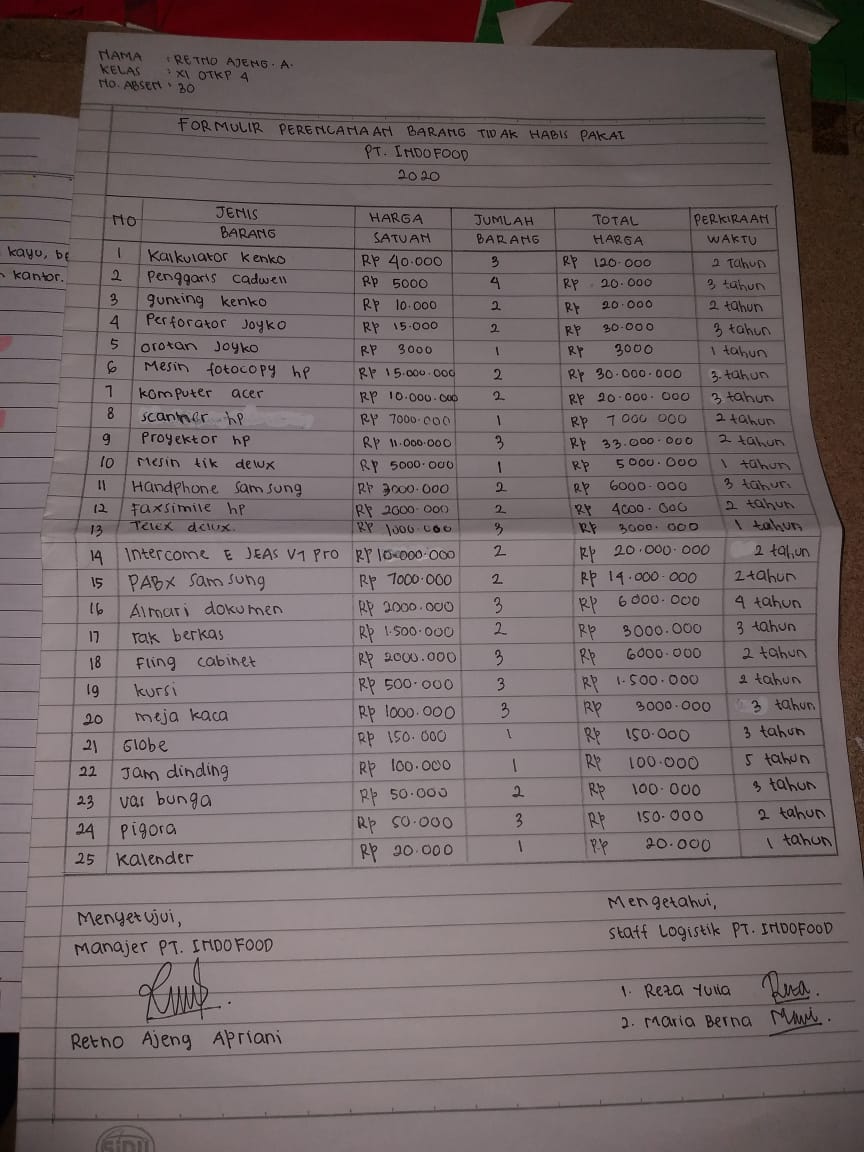 NAMA : RETNO AJENG. A.
KELAS : XI OTKP 4
NO. ABSEN : 30
FORMULIR PERENCANAAN BARANG TIDAK HABIS PAKAI
PT. INDOFOOD
2020
NO JENIS BARANG HARGA SATUAN JUMLAH BARANG TOTAL HARGA PERKIRAAN WAKTU
1 Kalkulator Kenko RP 40.000 3 RP 120.000 2 Tahun
2 Penggaris Cadwell RP 5000 4 RP 20.000 3 tahun
3 gunting kenko RP 10.000 2 RP 20.000 2 tahun
4 Perforator Joyko RP 15.000 2 RP 30.000 3 tahun
5 orotan Joyko RP 3000 1 RP 3000 1 tahun
6 Mesin fotocopy hp RP 15.000.000 2 RP 30.000.000 3 tahun
7 komputer acer RP 10.000.000 2 RP 20.000.000 3 tahun
8 scanner hp RP 7000.000 1 RP 7000 000 2 tahun
9 Proyektor hp RP 11.000.000 3 RP 33.000.000 2 tahun
10 Mesin tik delux RP 5000.000 1 RP 5000.000 1 tahun
11 Handphone Samsung RP 3000.000 2 RP 6000.000 3 tahun
12 faxsimile hp RP 2000.000 2 RP 4000.000 2 tahun
13 Telex delux. RP 1000.000 3 RP 3000.000 1 tahun
14 Intercome E JEAS V7 Pro RP 10.000.000 2 RP 20.000.000 2 tahun
15 PABX Samsung RP 7000.000 2 RP 14.000.000 2 tahun
16 Almari dokumen RP 2000.000 3 RP 6000.000 4 tahun
17 rak berkas RP 1.500.000 2 RP 3000.000 3 tahun
18 Fling cabinet RP 2000.000 3 RP 6000.000 2 tahun
19 kursi RP 500.000 3 RP 1.500.000 2 tahun
20 meja kaca RP 1000.000 3 RP 3000.000 3 tahun
21 Globe RP 150.000 1 RP 150.000 3 tahun
22 Jam dinding RP 100.000 1 RP 100.000 5 tahun
23 vas bunga RP 50.000 2 RP 100.000 3 tahun
24 pigora RP 50.000 3 RP 150.000 2 tahun
25 kalender RP 20.000 1 RP 20.000 1 tahun
Menyetujui,
Manajer PT. INDOFOOD
Retno Ajeng Apriani
Mengetahui,
Staff Logistik PT. INDOFOOD
1. Reza Yulia
2. Maria Berna
kayu,
kantor.
SIDU